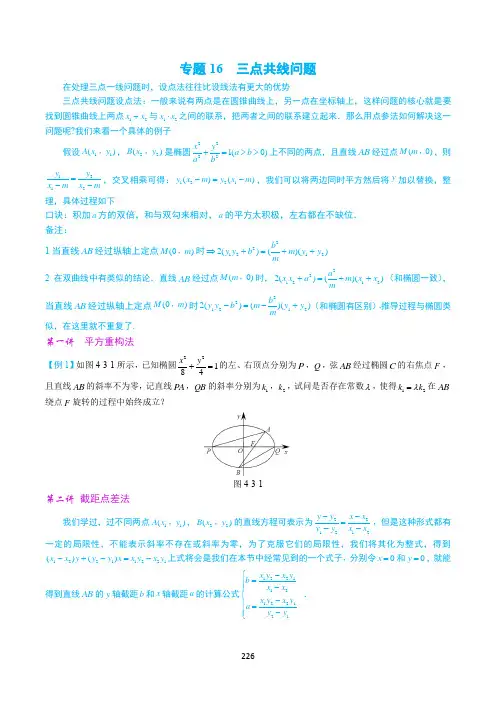 专题 16  三点共线问题
在处理三点一线问题时，设点法往往比设线法有更大的优势
三点共线问题设点法：一般来说有两点是在圆锥曲线上，另一点在坐标轴上，这样问题的核心就是要
找到圆锥曲线上两点 x₁+x₂ 与 x₁·x₂ 之间的联系，把两者之间的联系建立起来．那么用点参法如何解决这一
问题呢?我们来看一个具体的例子
假设 A(x₁，y₁)，B(x₂，y₂) 是椭圆 x²/a² + y²/b² = 1(a>b>0) 上不同的两点，且直线 AB 经过点 M(m，0)，则
y₁/(x₁−m) = y₂/(x₂−m)，交叉相乘可得：y₁(x₂−m) = y₂(x₁−m)，我们可以将两边同时平方然后将 y 加以替换，整
理，具体过程如下
口诀：积加 a 方的双倍，和与双勾来相对，a 的平方太积极，左右都在不缺位．
备注：
1 当直线 AB 经过纵轴上定点 M(0，m) 时 ⇒ 2(y₁y₂+b²) = (b²/m + m)(y₁+y₂)
2 在双曲线中有类似的结论．直线 AB 经过点 M(m，0) 时，2(x₁x₂+a²) = (a²/m + m)(x₁+x₂)（和椭圆一致），
当直线 AB 经过纵轴上定点 M(0，m) 时 2(y₁y₂−b²) = (m − b²/m)(y₁+y₂)（和椭圆有区别）．推导过程与椭圆类
似，在这里就不重复了.
第一讲  平方重构法
【例1】如图 4 3 1 所示，已知椭圆 x²/8 + y²/4 = 1 的左、右顶点分别为 P，Q，弦 AB 经过椭圆 C 的右焦点 F，
且直线 AB 的斜率不为零，记直线 PA，QB 的斜率分别为 k₁，k₂，试问是否存在常数 λ，使得 k₁=λk₂ 在 AB
绕点 F 旋转的过程中始终成立?
y
A
F
P O Q x
B
图 4 3 1
第二讲  截距点差法
我们学过，过不同两点 A(x₁，y₁)，B(x₂，y₂) 的直线方程可表示为 (y−y₂)/(y₁−y₂) = (x−x₂)/(x₁−x₂)，但是这种形式都有
一定的局限性，不能表示斜率不存在或斜率为零，为了克服它们的局限性，我们将其化为整式，得到
(x₁−x₂)y+(y₂−y₁)x = x₁y₂−x₂y₁ 上式将会是我们在本节中经常见到的一个式子．分别令 x=0 和 y=0，就能
得到直线 AB 的 y 轴截距 b 和 x 轴截距 a 的计算公式 { b = (x₁y₂−x₂y₁)/(x₁−x₂)
a = (x₁y₂−x₂y₁)/(y₂−y₁) ．
226